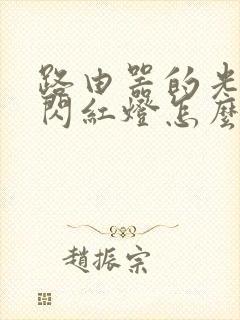 路由器的光
閃紅燈怎麼
趙振宗